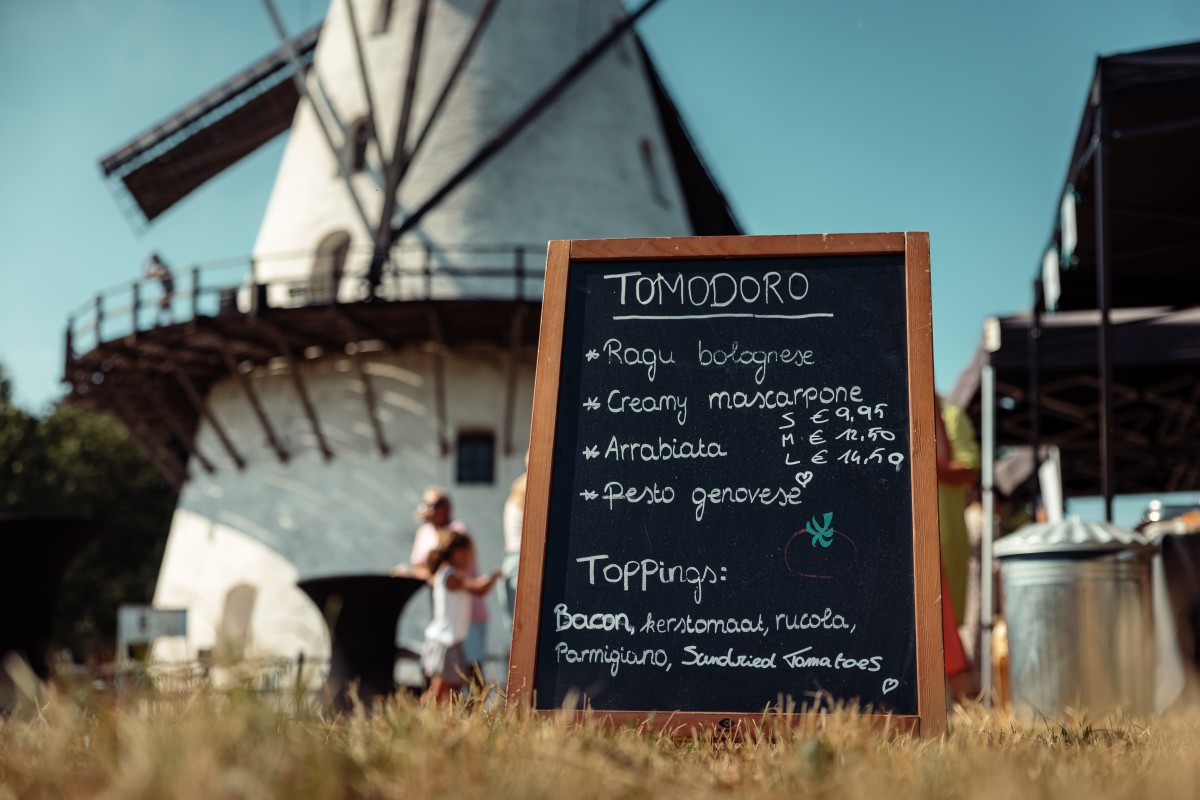 TOMODORO
* Ragu bolognese
* Creamy mascarpone
S € 9,95
M € 12,50
* Arrabiata
L € 14,50
* Pesto genovese
Toppings:
Bacon, kerstomaat, rucola,
Parmigiano, Sundried Tomatoes